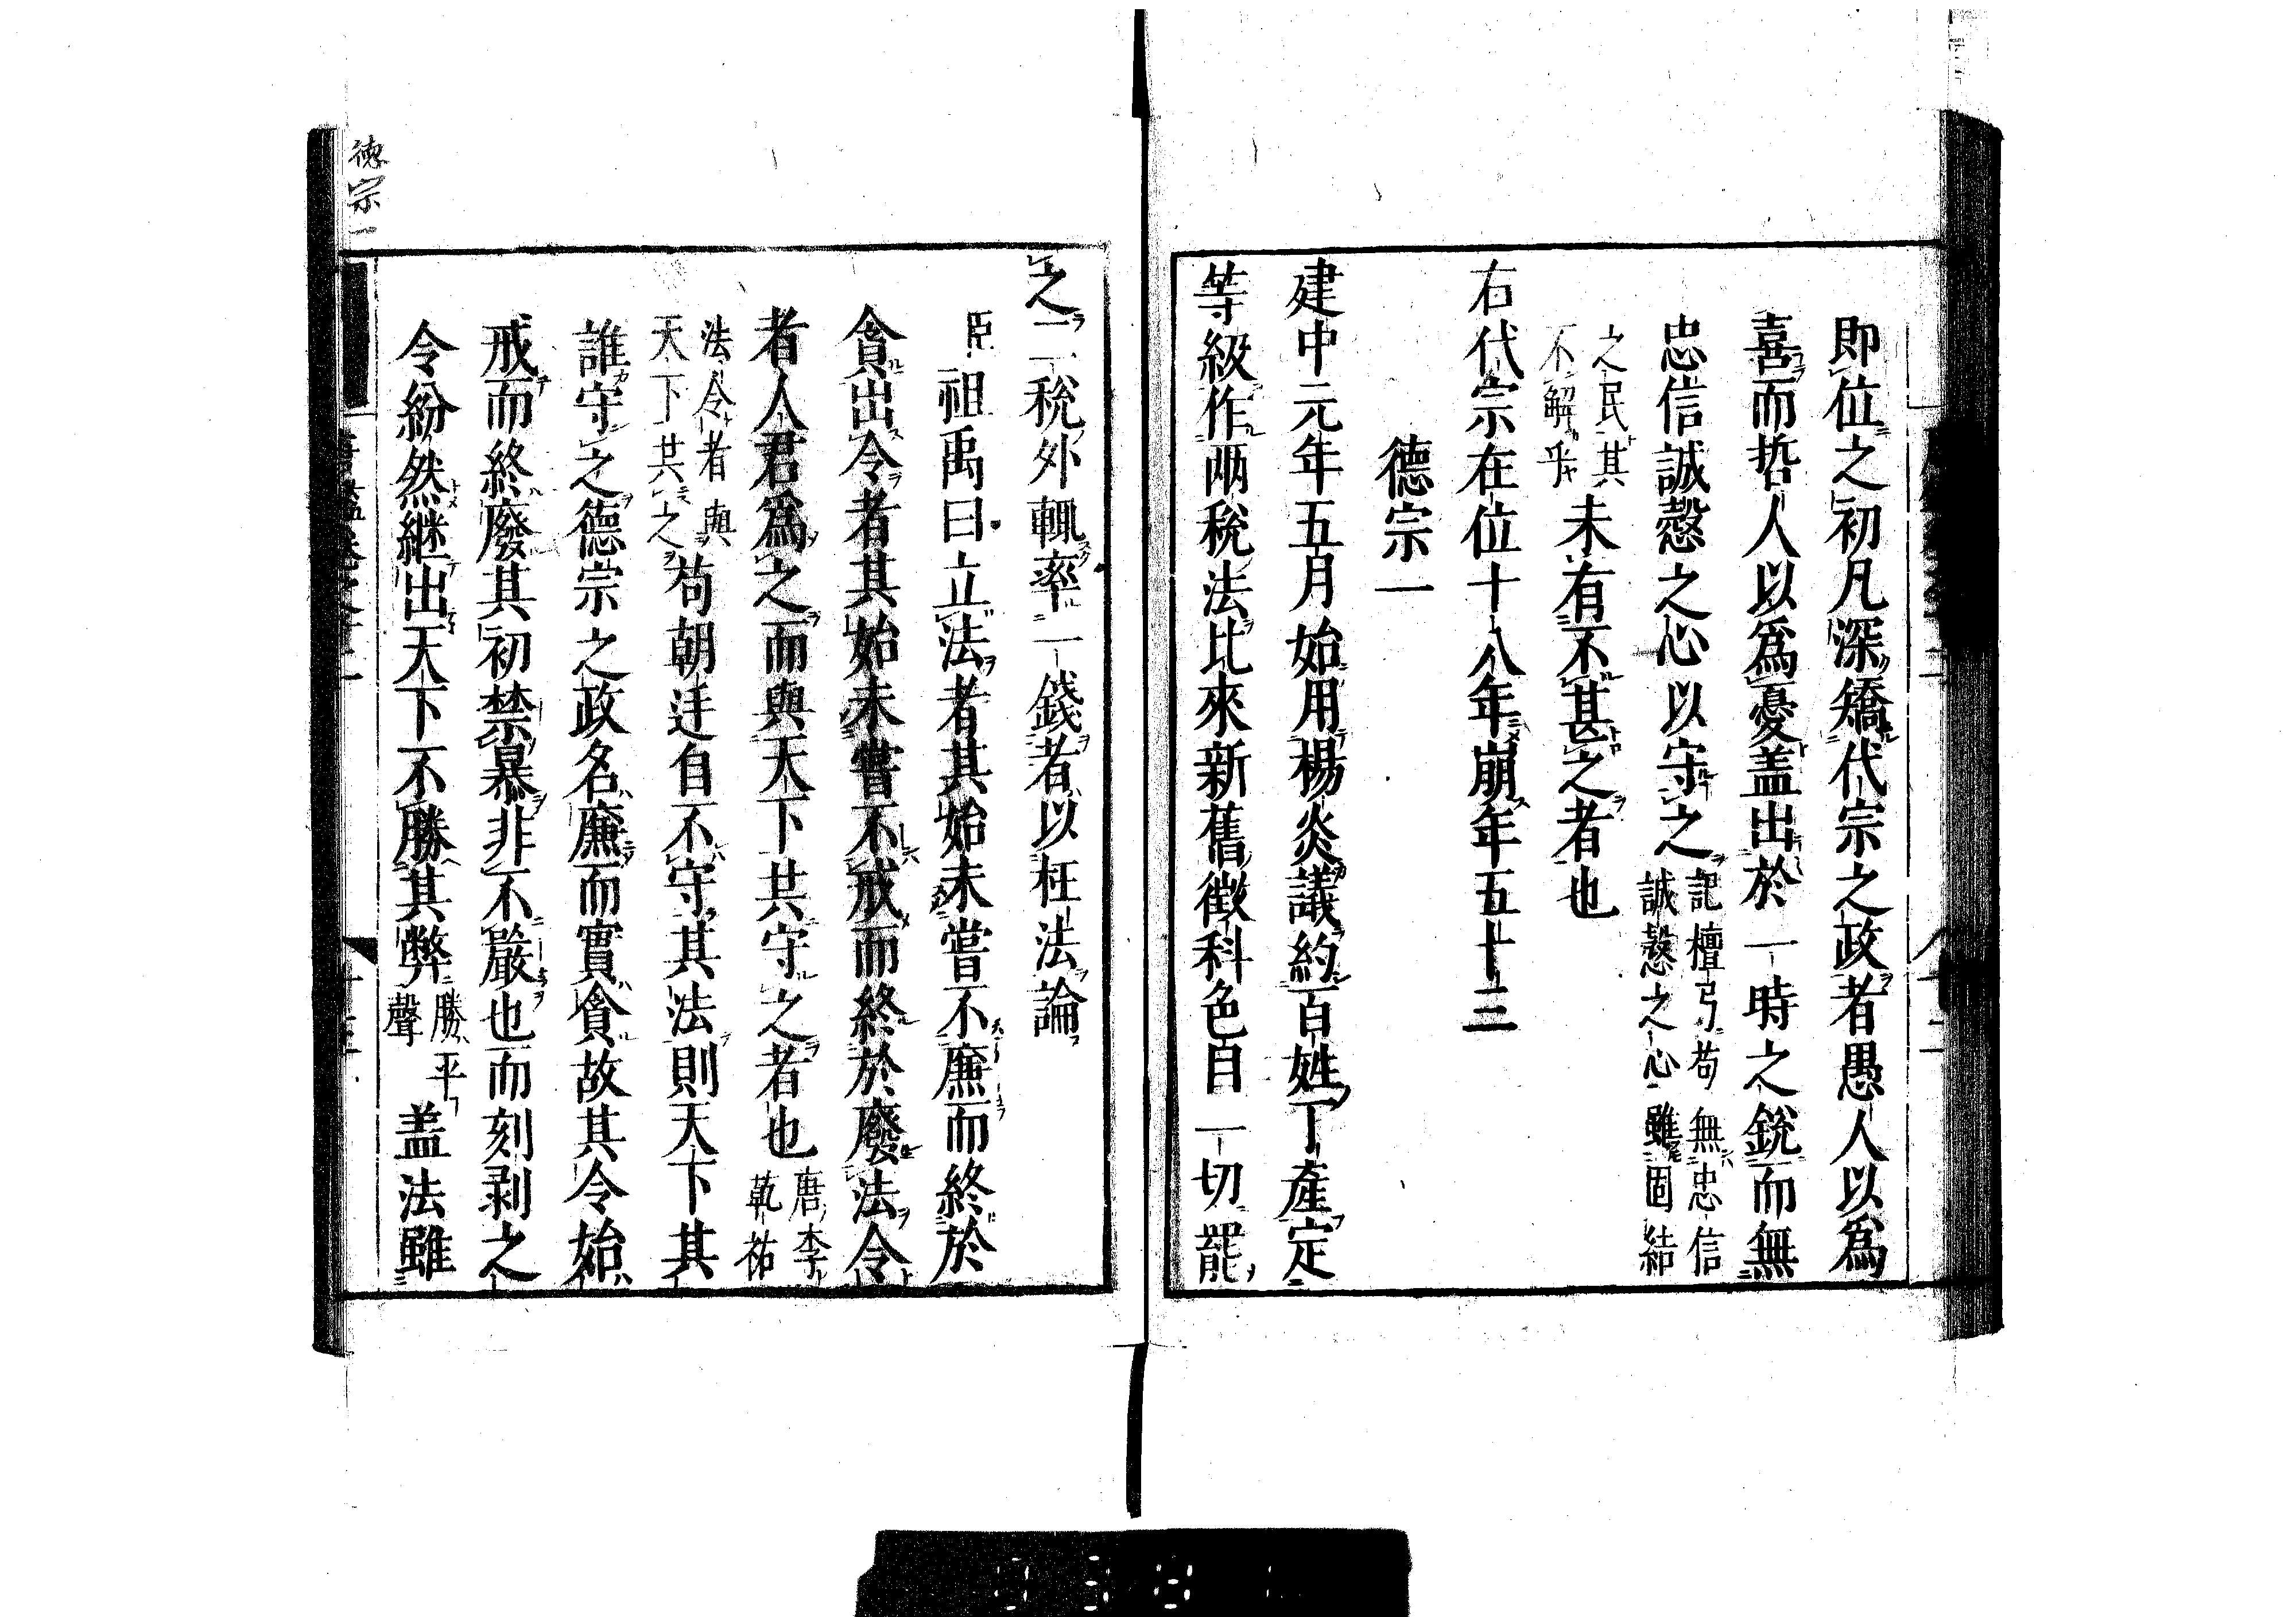 即位之初凡深矯代宗之政者愚人以爲
喜而哲人以爲憂盖出於一時之銳而無
忠信誠愨之心以守之記檀弓苟無忠信誠愨之心雖固結
之民其不解乎未有不甚之者也
右代宗在位十八年崩年五十三
德宗一
建中元年五月始用楊炎議約百姓丁產定
等級作兩稅法比來新舊徵科色目一切罷
之二稅外輒率一錢者以枉法論
臣祖禹曰立法者其始未嘗不廉而終於
貪出令者其始未嘗不戒而終於廢法令
者人君爲之而與天下共守之者也唐李乾祐
法令者與天下共之苟朝廷自不守其法則天下其
誰守之德宗之政名廉而實貪故其令始
戒而終廢其初禁暴非不嚴也而刻剥之
令紛然継出天下不勝其弊勝平聲盖法雖
德宗一